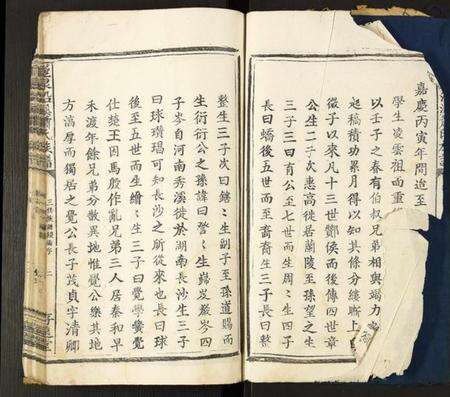 嘉慶丙寅年間造至
學生凌雲祖而重
以壬子之春有伯叔兄弟相與竭力
起稿積功累月得以知其條分縷晰上
微子以來凡十三世鄼侯而後傳四世章
公生二子次惠高徙居蘭陵至孫望之生
三子三曰育公至七世而生周〻生四子
長曰蟜後五世而至斉斉生三子長曰整
整生三子次曰鎋〻生副子至孫道賜而
生衍衍公之孫諱曰詧〻生巋岌巖岑四
子岑自河南秀溪徙於湖南長沙生三子
曰球瓚瑒可知長沙之所從來也長曰球
後至五世而生繪〻生三子曰覺學黌覺
仕獎王因馬殷作亂兄弟三人居泰和早
禾渡年餘兄弟分散異地惟覺公樂其地
方滈厚而獨居之覺公長子茂貞字清卿